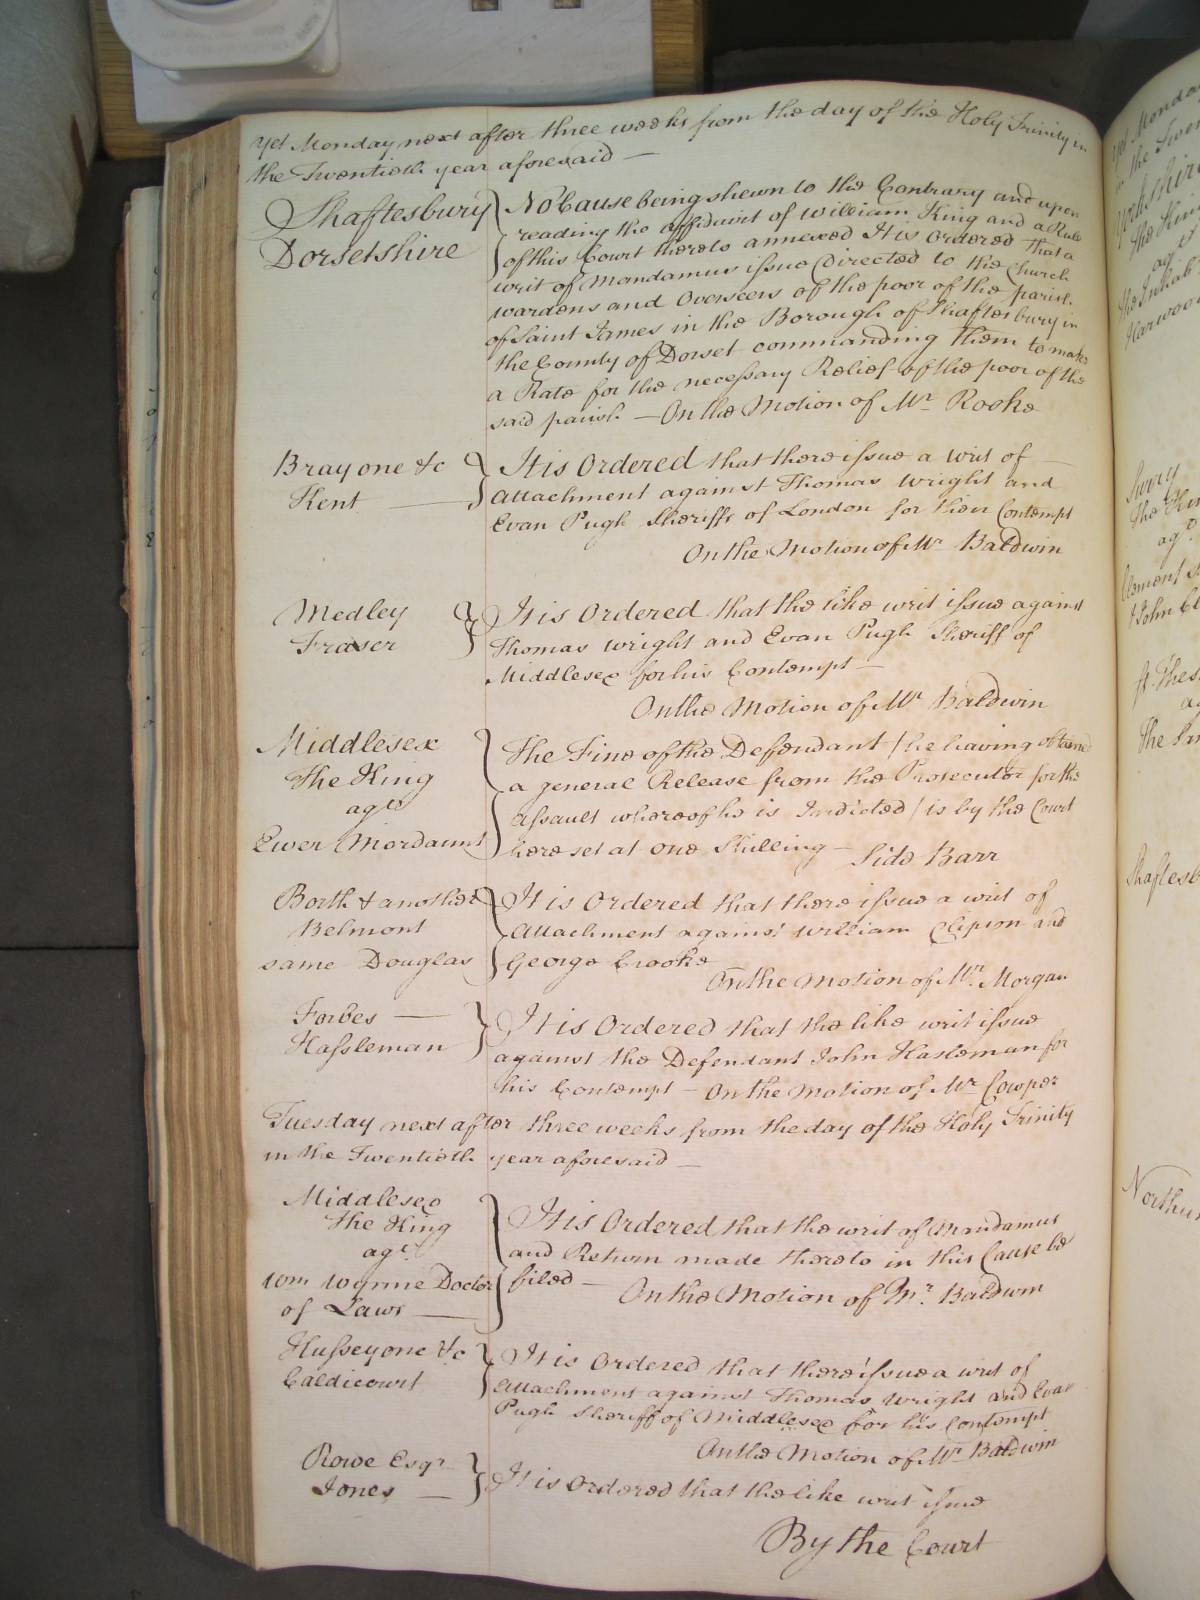 yet Monday next after three weeks from the day of the Holy Trinity in
the Twentieth year aforesaid —
Shaftesbury
Dorsetshire
No Cause being shewn to the Contrary and upon
reading the affidavit of William King and a Rule
of this Court thereto annexed It is Ordered that a
writ of Mandamus issue Directed to the Church
wardens and Overseers of the poor of the parish
of Saint James in the Borough of Shaftesbury in
the County of Dorset commanding them to make
a Rate for the necessary Relief of the poor of the
said parish — On the Motion of Mr Rooke
Bray one &c
Kent —
It is Ordered that there issue a writ of —
attachment against Thomas Wright and
Evan Pugh Sheriffs of London for their Contempt
On the Motion of Mr Baldwin
Medley
Fraser
It is Ordered that the like writ issue against
Thomas Wright and Evan Pugh Sheriff of
Middlesex for his Contempt —
On the Motion of Mr Baldwin
Middlesex
The King
agt
Ewer Mordaunt
The Fine of the Defendant / he having obtained
a general Release from the Prosecutor for the
assault whereof he is Indicted / is by the Court
here set at one Shilling — Side Barr
Borth & another
Belmont
same Douglas
It is Ordered that there issue a writ of
Attachment against William Clipson and
George Crooke
On the Motion of Mr. Morgan
Forbes —
Hassleman
It is Ordered that the like writ issue
against the Defendant John Hasleman for
his Contempt — On the Motion of Mr Cowper
Tuesday next after three weeks from the day of the Holy Trinity
in the Twentieth year aforesaid —
Middlesex
The King
agt.
Wm Wynne Doctor
of Laws —
It is Ordered that the writ of Mandamus
and Return made thereto in this Cause be
filed — On the Motion of Mr. Baldwin
Hussey one &c
Caldicourt
It is Ordered that there issue a writ of
Attachment against Thomas Wright and Evan
Pugh Sheriff of Middlesex for his Contempt
On the Motion of Mr Baldwin
Rowe Esqr
Jones —
It is Ordered that the like writ issue
By the Court
yet Monday
in the Twen
Yorkshire
The Kin
agt
the Inhab
Harwood
Surry
The Kin
agt.
The In
Shaftesb
Northu